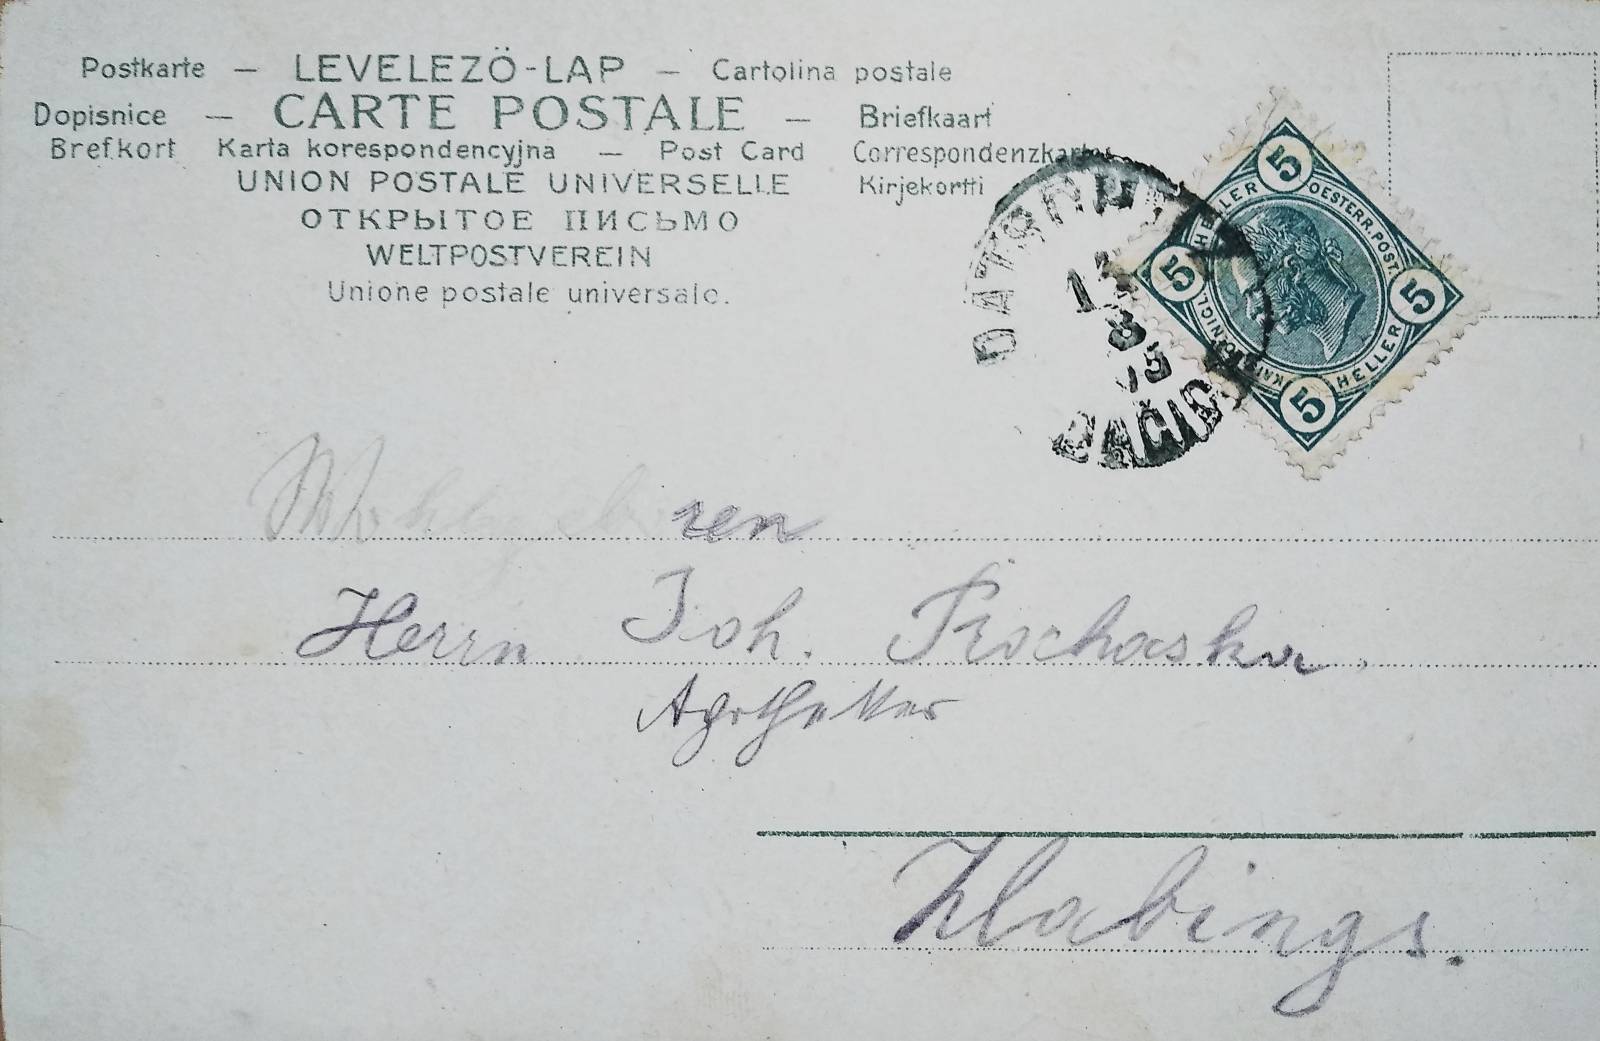 Postkarte – LEVELEZÖ-LAP – Cartolina postale
Dopisnice – CARTE POSTALE – Briefkaart
Brefkort Karta korespondencyjna – Post Card Correspondenzkarte
UNION POSTALE UNIVERSELLE Kirjekortti
ОТКРЫТОЕ ПИСЬМО
WELTPOSTVEREIN
Unione postale universale.
5 HELLER 5 OESTERR. POST. 5 HELLER 5
DAČICE
Wohlgeboren
Herrn Joh.
Apotheker
Zlabings.